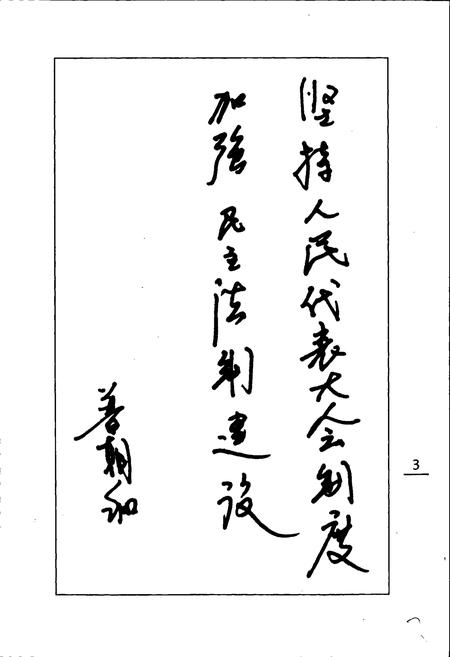 坚持人民代表大会制度
加强民主法制建设
普朝和
3